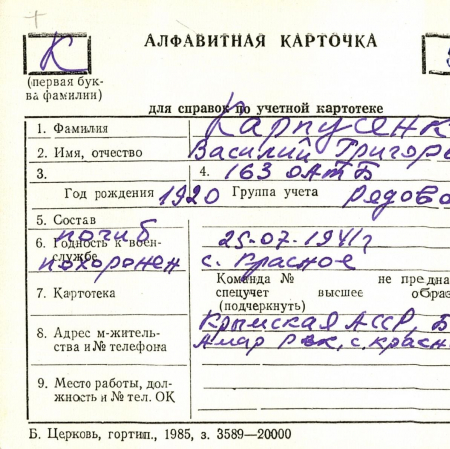 АЛФАВИТНАЯ КАРТОЧКА
К
(первая бук-
ва фамилии)
для справок по учетной картотеке
1. Фамилия Карпусенк
2. Имя, отчество Василий Григорь
3. 4. 163 ОАТБ
Год рождения 1920 Группа учета рядово
5. Состав
погиб
6. Годность к воен-
службе
25-07-1941г
похоронен с. Красное
Команда № не предна
7. Картотека спецучет высшее образ
(подчеркнуть)
Крымская АССР, Б
8. Адрес м-житель-
ства и № телефона
р-н, с. Красн
9. Место работы, дол-
жность и № тел. ОК
Б. Церковь, гортип., 1985, з. 3589—20000